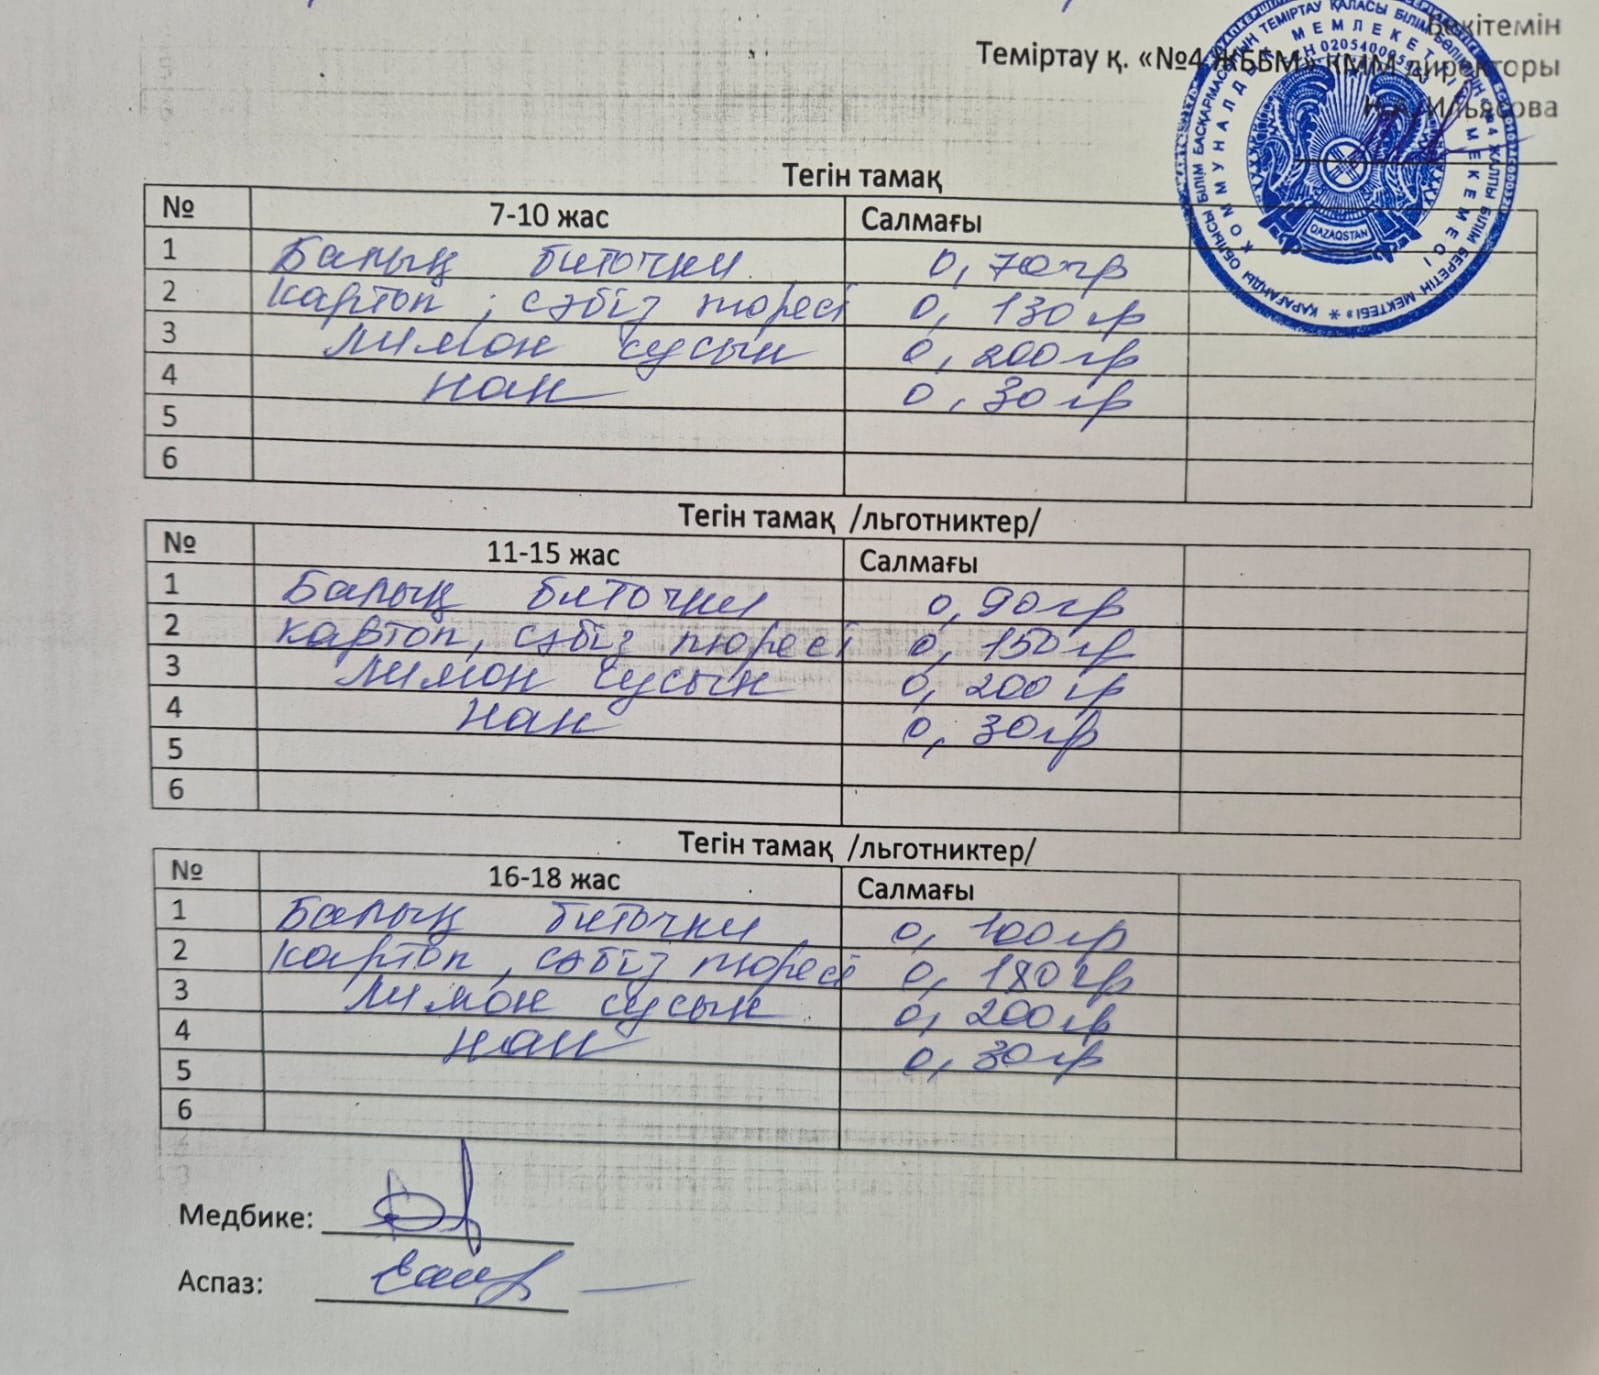 Бекітемін
Теміртау қ. «№4 ЖББМ» КММ директоры
Ильясова
ҚАРАҒАНДЫ ОБЛЫСЫ БІЛІМ БАСҚАРМАСЫНЫҢ ТЕМІРТАУ ҚАЛАСЫ БІЛІМ БӨЛІМІНІҢ «№4 ЖАЛПЫ БІЛІМ БЕРЕТІН МЕКТЕБІ»
КОММУНАЛДЫҚ МЕМЛЕКЕТТІК МЕКЕМЕСІ
QAZAQSTAN
Тегін тамақ
№ 7-10 жас Салмағы
1 Балық биточки 0,70гр
2 Картоп, сәбіз пюресі 0,130гр
3 Лимон сусын 0,200гр
4 Нан 0,30гр
5
6
Тегін тамақ /льготниктер/
№ 11-15 жас Салмағы
1 Балық биточки 0,90гр
2 картоп, сәбіз пюресі 0,150гр
3 Лимон сусын 0,200гр
4 Нан 0,30гр
5
6
Тегін тамақ /льготниктер/
№ 16-18 жас Салмағы
1 Балық биточки 0,100гр
2 картоп, сәбіз пюресі 0,180гр
3 Лимон сусын 0,200гр
4 Нан 0,30гр
5
6
Медбике:
Аспаз: